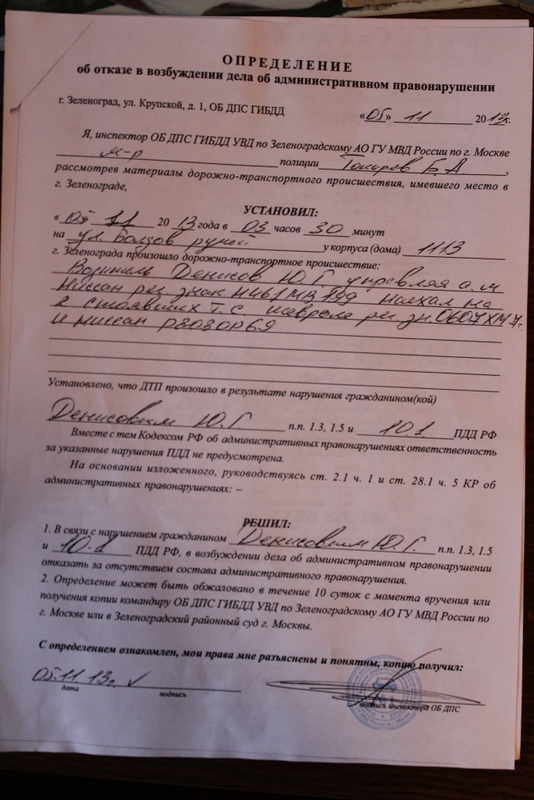 ОПРЕДЕЛЕНИЕ
об отказе в возбуждении дела об административном правонарушении
г. Зеленоград, ул. Крупской, д. 1, ОБ ДПС ГИБДД
«05» 11 2013г.
Я, инспектор ОБ ДПС ГИБДД УВД по Зеленоградскому АО ГУ МВД России по г. Москве
м-р полиции Б А,
рассмотрев материалы дорожно-транспортного происшествия, имевшего место в
г. Зеленограде,
УСТАНОВИЛ:
« 05 11 20 13 года в 03 часов 30 минут
на ул. у корпуса (дома) 1113
г. Зеленограда произошло дорожно-транспортное происшествие:
Денисов Ю.Г управляя а.м
Ниссан рег знак Н461МВ199 наехал на
2 стоявших т.с рег зн. 0607ХМ
и Ниссан
Установлено, что ДТП произошло в результате нарушения гражданином(кой)
Денисовым Ю.Г. п.п. 1.3, 1.5 и 10.1 ПДД РФ
Вместе с тем Кодексом РФ об административных правонарушениях ответственность
за указанные нарушения ПДД не предусмотрена.
На основании изложенного, руководствуясь ст. 2.1 ч. 1 и ст. 28.1 ч. 5 КР об
административных правонарушениях: –
РЕШИЛ:
1. В связи с нарушением гражданином Денисовым Ю.Г. п.п. 1.3, 1.5
и 10.1 ПДД РФ, в возбуждении дела об административном правонарушении
отказать за отсутствием состава административного правонарушения.
2. Определение может быть обжаловано в течение 10 суток с момента вручения или
получения копии командиру ОБ ДПС ГИБДД УВД по Зеленоградскому АО ГУ МВД России по
г. Москве или в Зеленоградский районный суд г. Москвы.
С определением ознакомлен, мои права мне разъяснены и понятны, копию получил:
05.11.13г.
дата подпись подпись инспектора ОБ ДПС